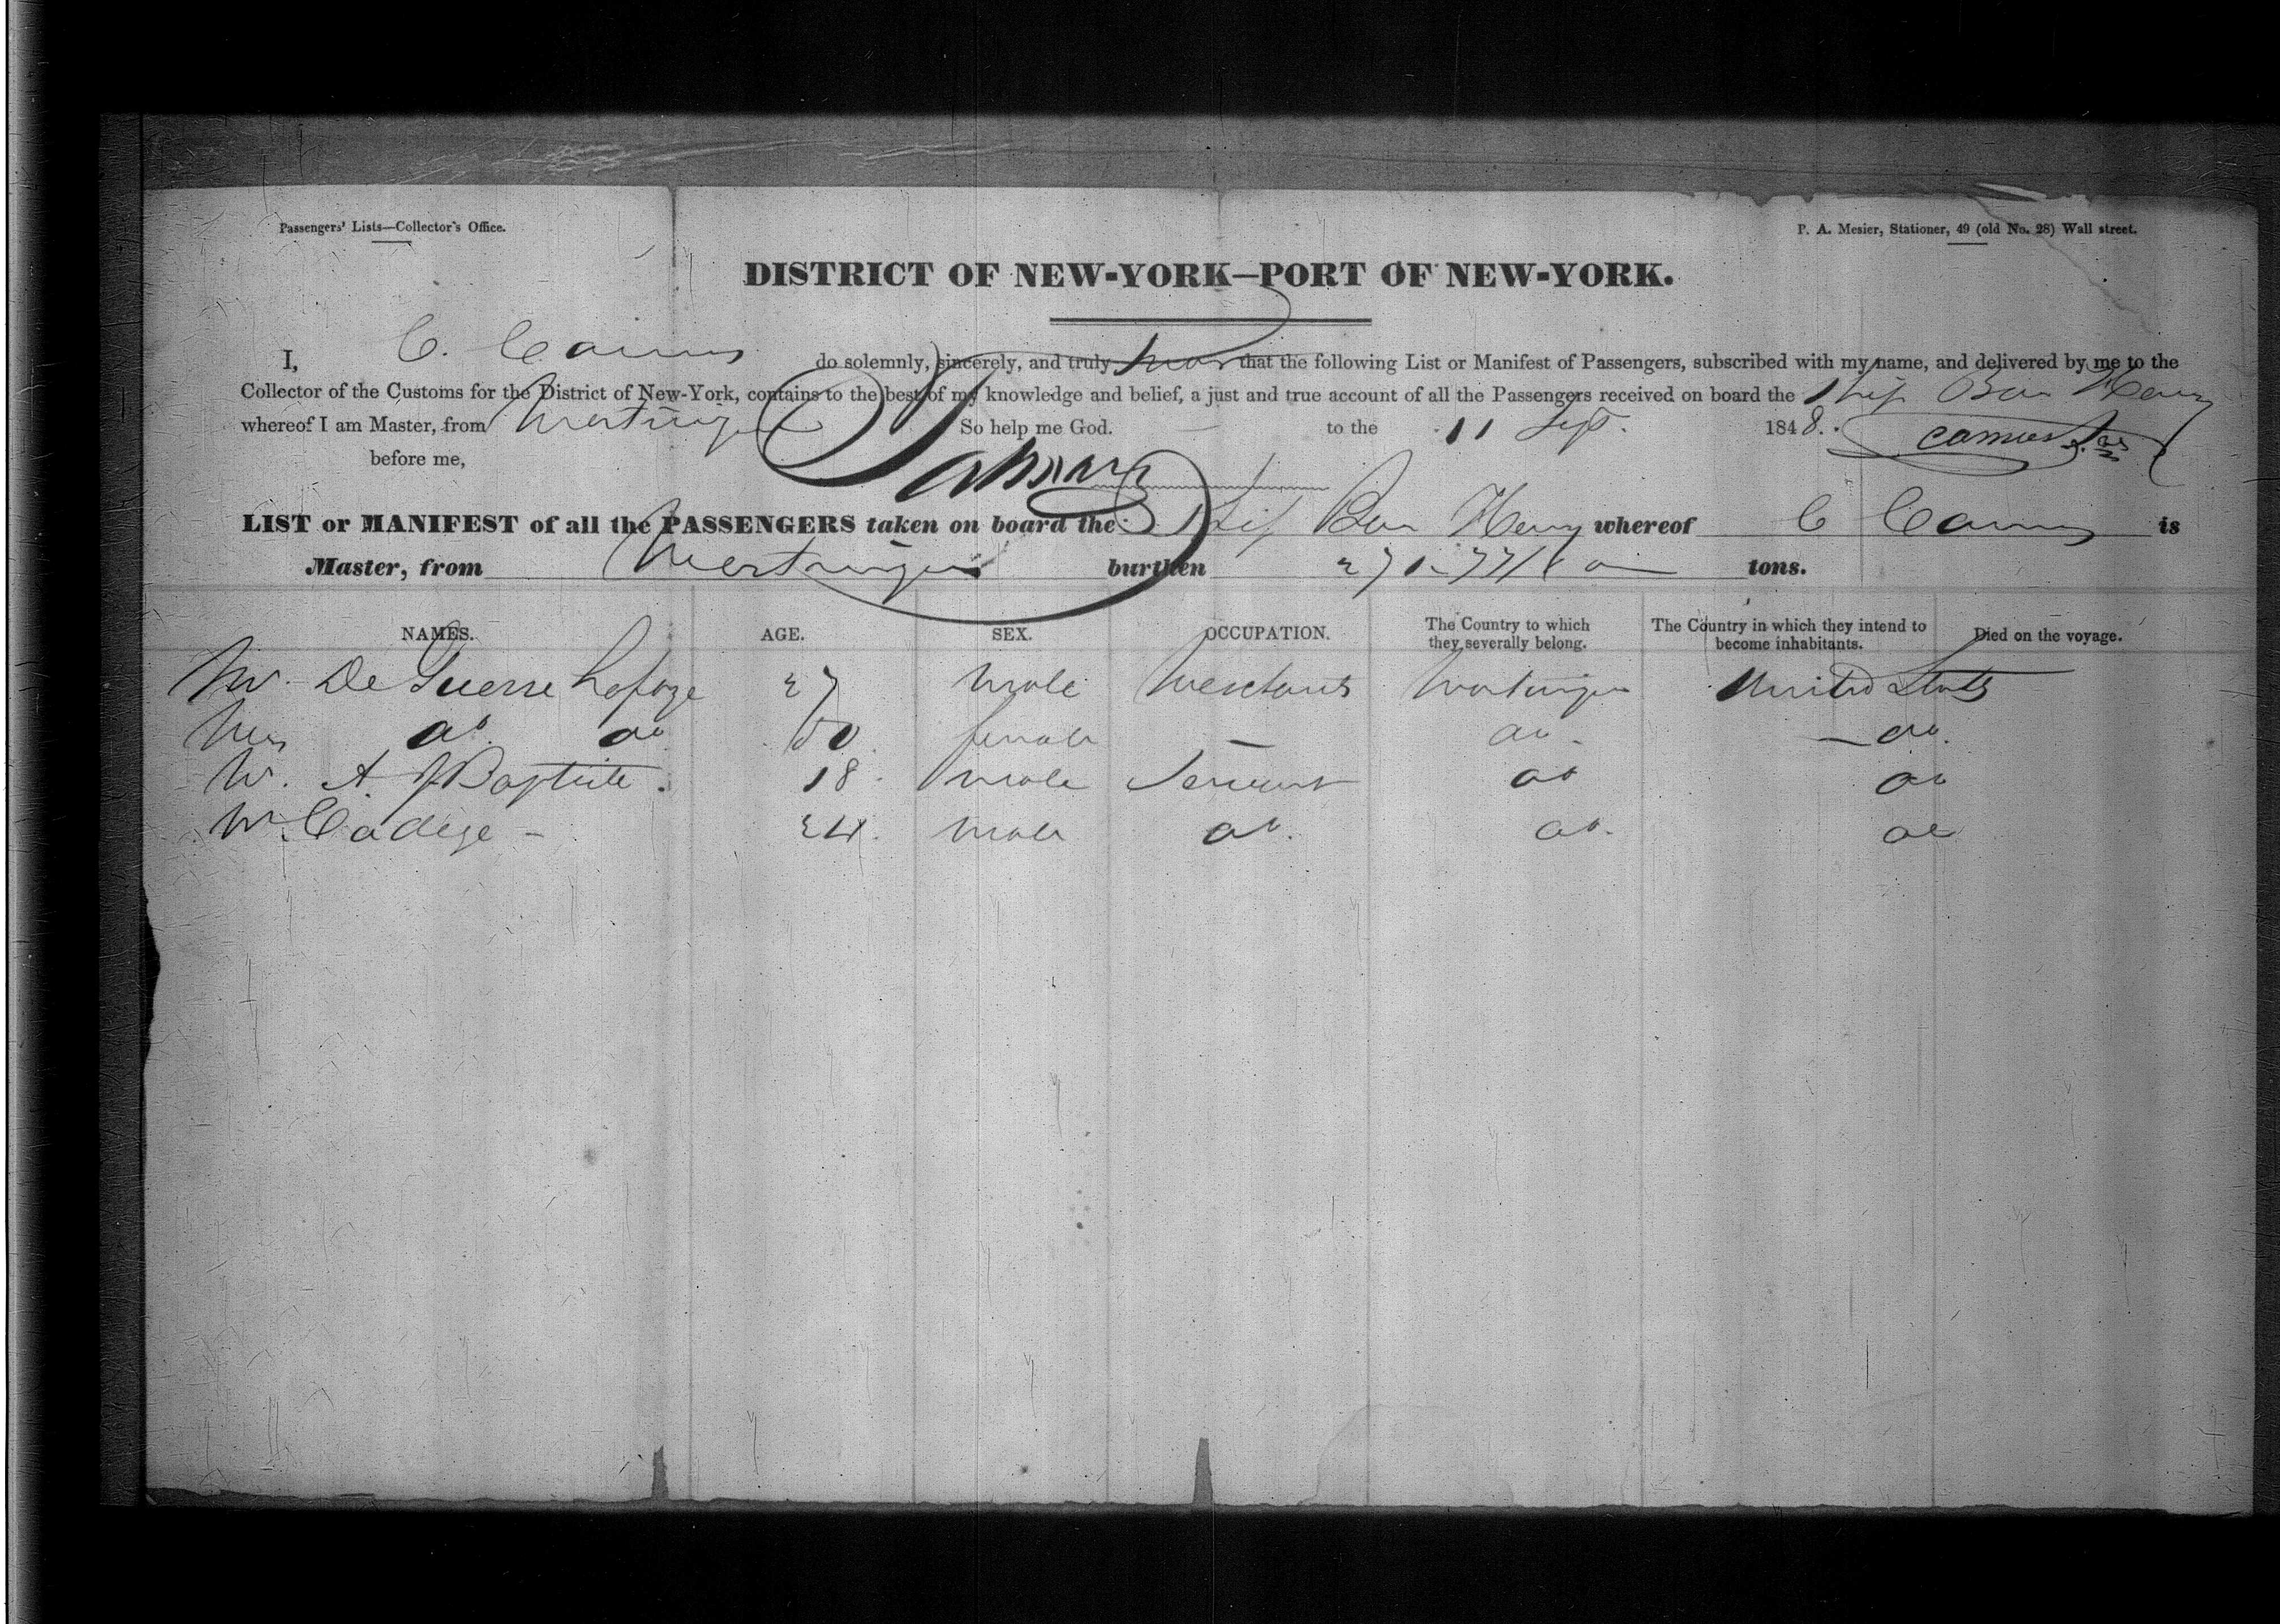 Passengers' Lists—Collector's Office.
P. A. Mesier, Stationer, 49 (old No. 28) Wall street.
DISTRICT OF NEW-YORK—PORT OF NEW-YORK.
I, C. Camus do solemnly, sincerely, and truly swear that the following List or Manifest of Passengers, subscribed with my name, and delivered by me to the
Collector of the Customs for the District of New-York, contains to the best of my knowledge and belief, a just and true account of all the Passengers received on board the Ship Bon Henry
whereof I am Master, from Martinique So help me God. to the 11 Sept. 1848. Camus
before me,
LIST or MANIFEST of all the PASSENGERS taken on board the Ship Bon Henry whereof C Camus is
Master, from Martinique burthen tons.
NAMES. AGE. SEX. OCCUPATION. The Country to which they severally belong. The Country in which they intend to become inhabitants. Died on the voyage.
Mr. De Guerre 27 male Merchant Martinique United States
Mrs do do female — do - — do
Mr. A. J Baptiste. 18 male Servant do do
Mr. Cadége - 24. male do. do. do